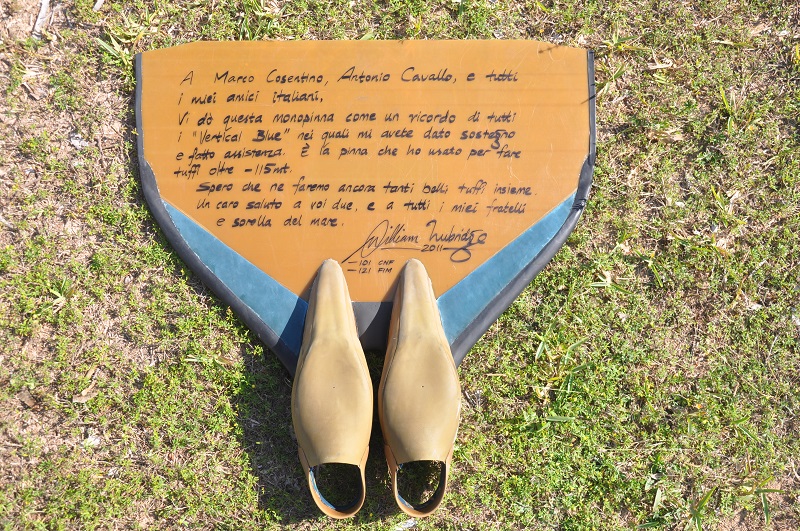 A Marco Cosentino, Antonio Cavallo, e tutti
i miei amici italiani,
Vi dò questa monopinna come un ricordo di tutti
i "Vertical Blue" nei quali mi avete dato sostegno
e fatto assistenza. È la pinna che ho usato per fare
tuffi oltre -115mt.
Spero che ne faremo ancora tanti belli tuffi insieme.
Un caro saluto a voi due, e a tutti i miei fratelli
e sorella del mare.
William Trubridge
2011
-101 CNF
-121 FIM